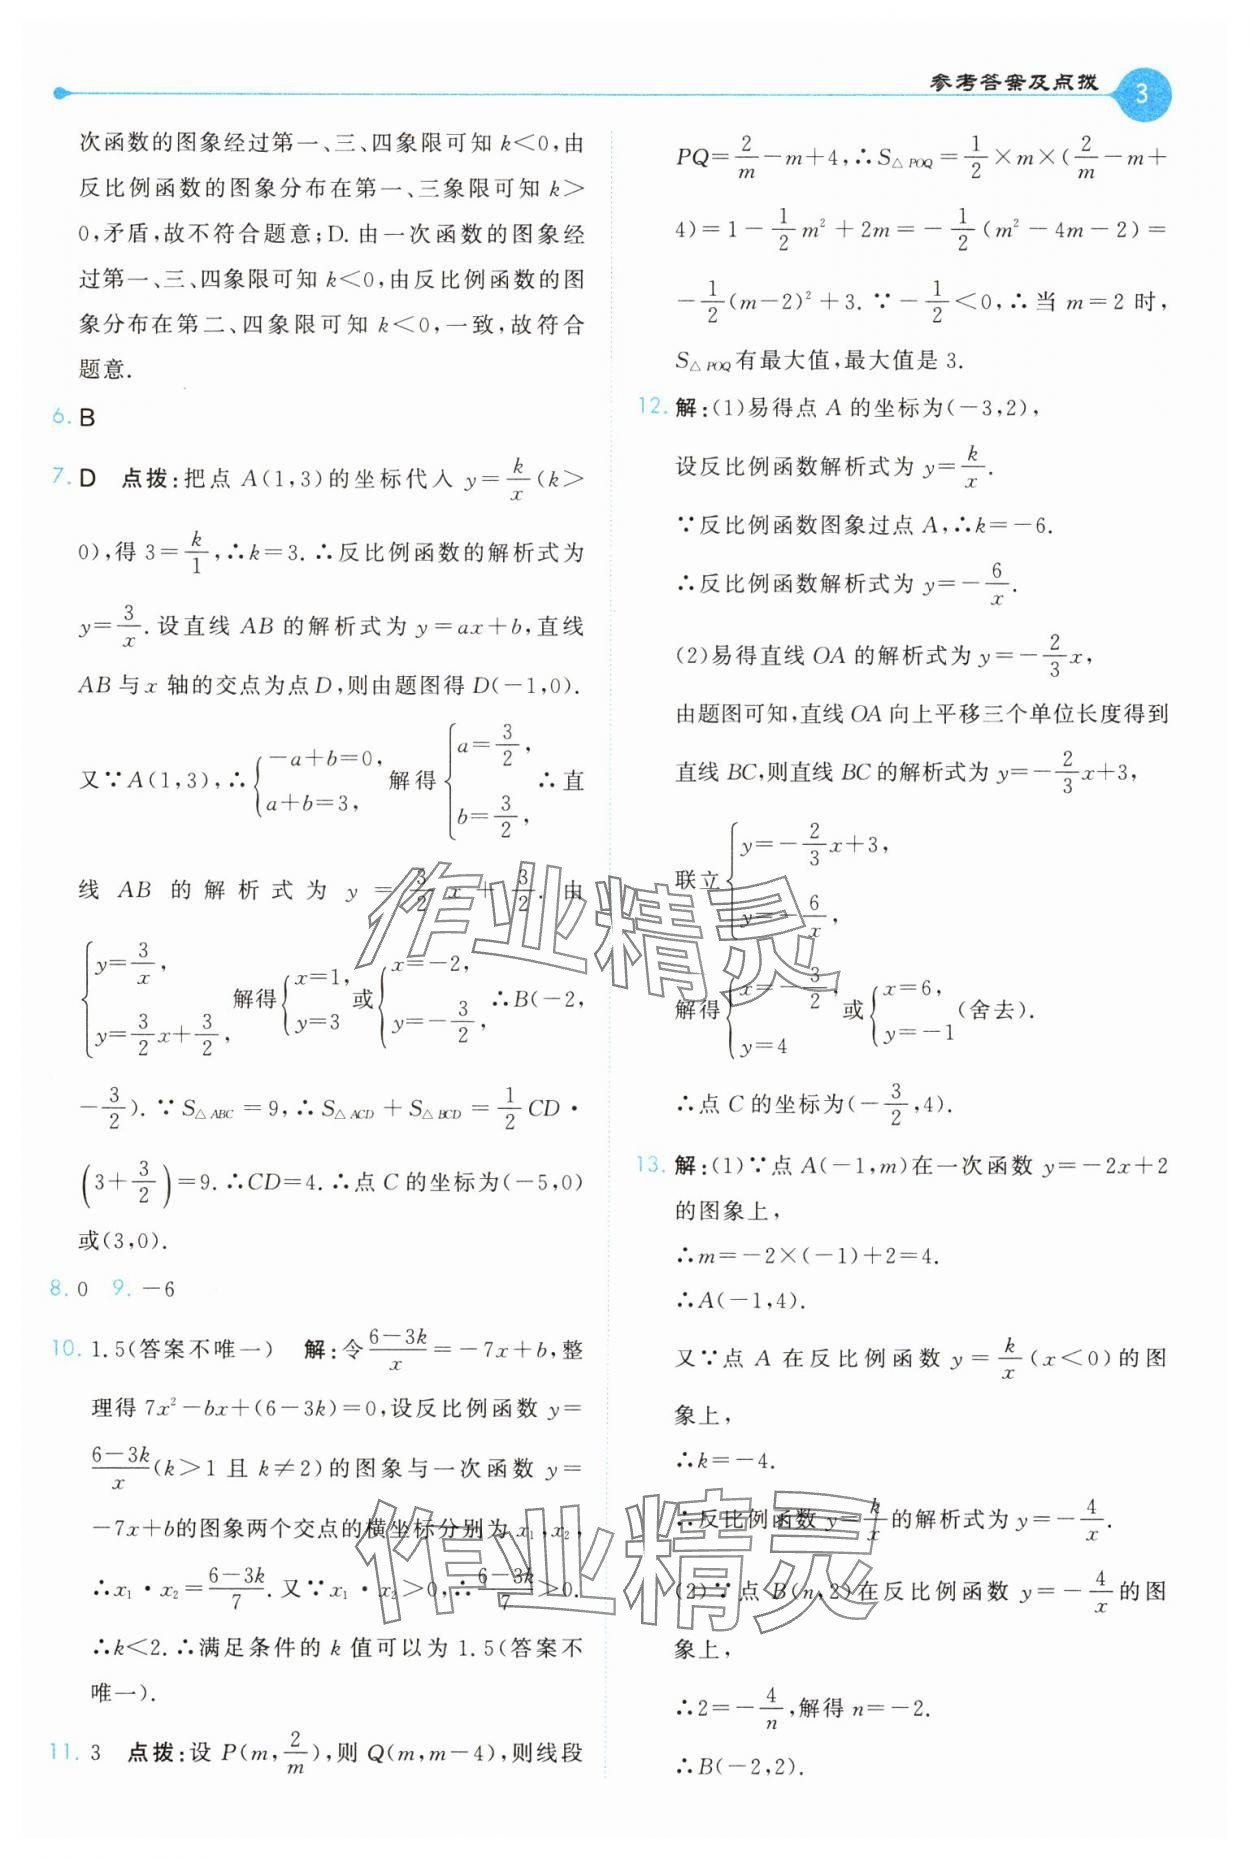 参考答案及点拨
3
次函数的图象经过第一、三、四象限可知 k＜0,由
反比例函数的图象分布在第一、三象限可知 k＞
0,矛盾,故不符合题意;D. 由一次函数的图象经
过第一、三、四象限可知 k＜0,由反比例函数的图
象分布在第二、四象限可知 k＜0,一致,故符合
题意.
6. B
7. D 点拨:把点 A(1,3)的坐标代入 y=k/x(k＞
0),得 3=k/1,∴k=3.∴反比例函数的解析式为
y=3/x.设直线 AB 的解析式为 y=ax+b,直线
AB 与 x 轴的交点为点 D,则由题图得 D(−1,0).
又∵A(1,3),∴{−a+b=0, a+b=3, 解得{a=3/2, b=3/2, ∴直
线 AB 的解析式为 y=3/2 x+3/2.由
{y=3/x, y=3/2 x+3/2, 解得{x=1, y=3 或{x=−2, y=−3/2, ∴B(−2,
−3/2).∵S△ABC=9,∴S△ACD+S△BCD=1/2 CD·
(3+3/2)=9.∴CD=4.∴点 C 的坐标为(−5,0)
或(3,0).
8. 0 9. −6
10. 1.5(答案不唯一) 解:令(6−3k)/x=−7x+b,整
理得 7x²−bx+(6−3k)=0,设反比例函数 y=
(6−3k)/x(k＞1 且 k≠2)的图象与一次函数 y=
−7x+b的图象两个交点的横坐标分别为 x₁,x₂,
∴x₁·x₂=(6−3k)/7.又∵x₁·x₂＞0,∴(6−3k)/7＞0.
∴k＜2.∴满足条件的 k 值可以为 1.5(答案不
唯一).
11. 3 点拨:设 P(m,2/m),则 Q(m,m−4),则线段
PQ=2/m−m+4,∴S△POQ=1/2×m×(2/m−m+
4)=1−1/2 m²+2m=−1/2(m²−4m−2)=
−1/2(m−2)²+3.∵−1/2＜0,∴当 m=2 时,
S△POQ有最大值,最大值是 3.
12. 解:(1)易得点 A 的坐标为(−3,2),
设反比例函数解析式为 y=k/x.
∵反比例函数图象过点 A,∴k=−6.
∴反比例函数解析式为 y=−6/x.
(2)易得直线 OA 的解析式为 y=−2/3 x,
由题图可知,直线 OA 向上平移三个单位长度得到
直线 BC,则直线 BC 的解析式为 y=−2/3 x+3,
联立{y=−2/3 x+3, y=−6/x,
解得{x=−3/2 y=4 或{x=6, y=−1 (舍去).
∴点 C 的坐标为(−3/2,4).
13. 解:(1)∵点 A(−1,m)在一次函数 y=−2x+2
的图象上,
∴m=−2×(−1)+2=4.
∴A(−1,4).
又∵点 A 在反比例函数 y=k/x(x＜0)的图
象上,
∴k=−4.
∴反比例函数 y=k/x的解析式为 y=−4/x.
(2)∵点 B(n,2)在反比例函数 y=−4/x的图
象上,
∴2=−4/n,解得 n=−2.
∴B(−2,2).
作业精灵
作业精灵